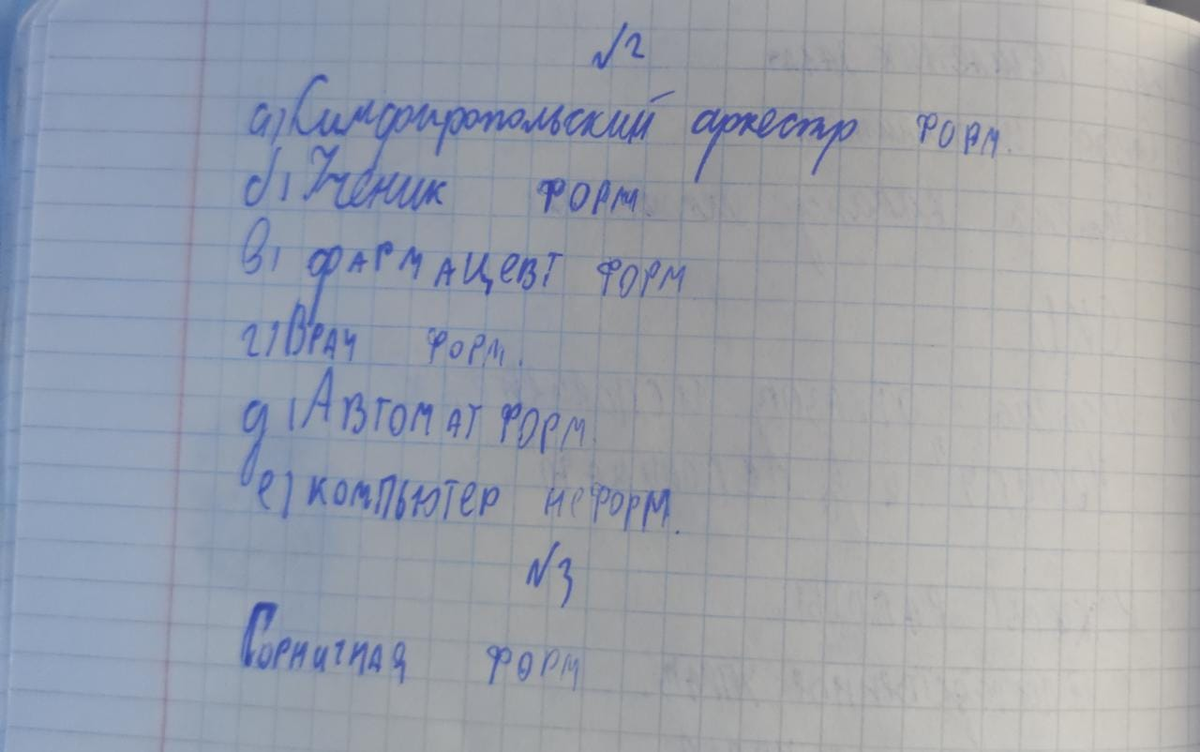 №2
а) Симфоиропольский аркестр форм.
б) Ученик форм.
в) фармацевт форм
г) Врач форм.
д) Автомат форм.
е) компьютер неформ.
№3
Горничная форм